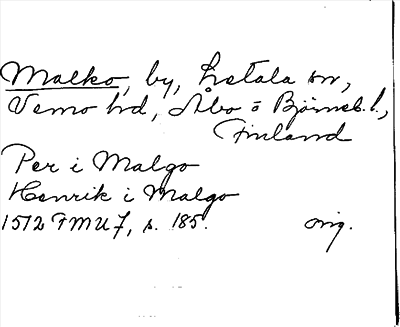 Malko, by, Letala sn,
Vemo hd, Åbo o Björneb. l.,
Finland
Per i Malgo
Henrik i Malgo
1572 FMU 7, s. 185. orig.